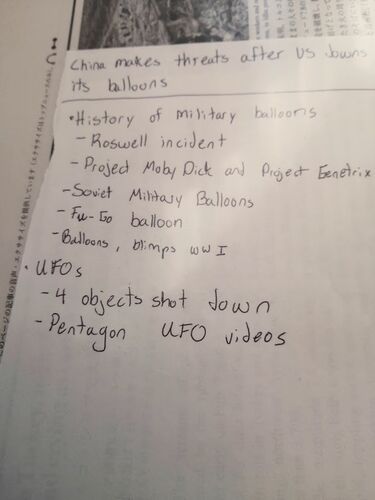 China makes threats after US downs
its balloons
• History of military balloons
- Roswell incident
- Project Moby Dick and Project Genetrix
- Soviet Military Balloons
- Fu-Go balloon
- Balloons, blimps WW I
• UFOs
- 4 objects shot down
- Pentagon UFO videos